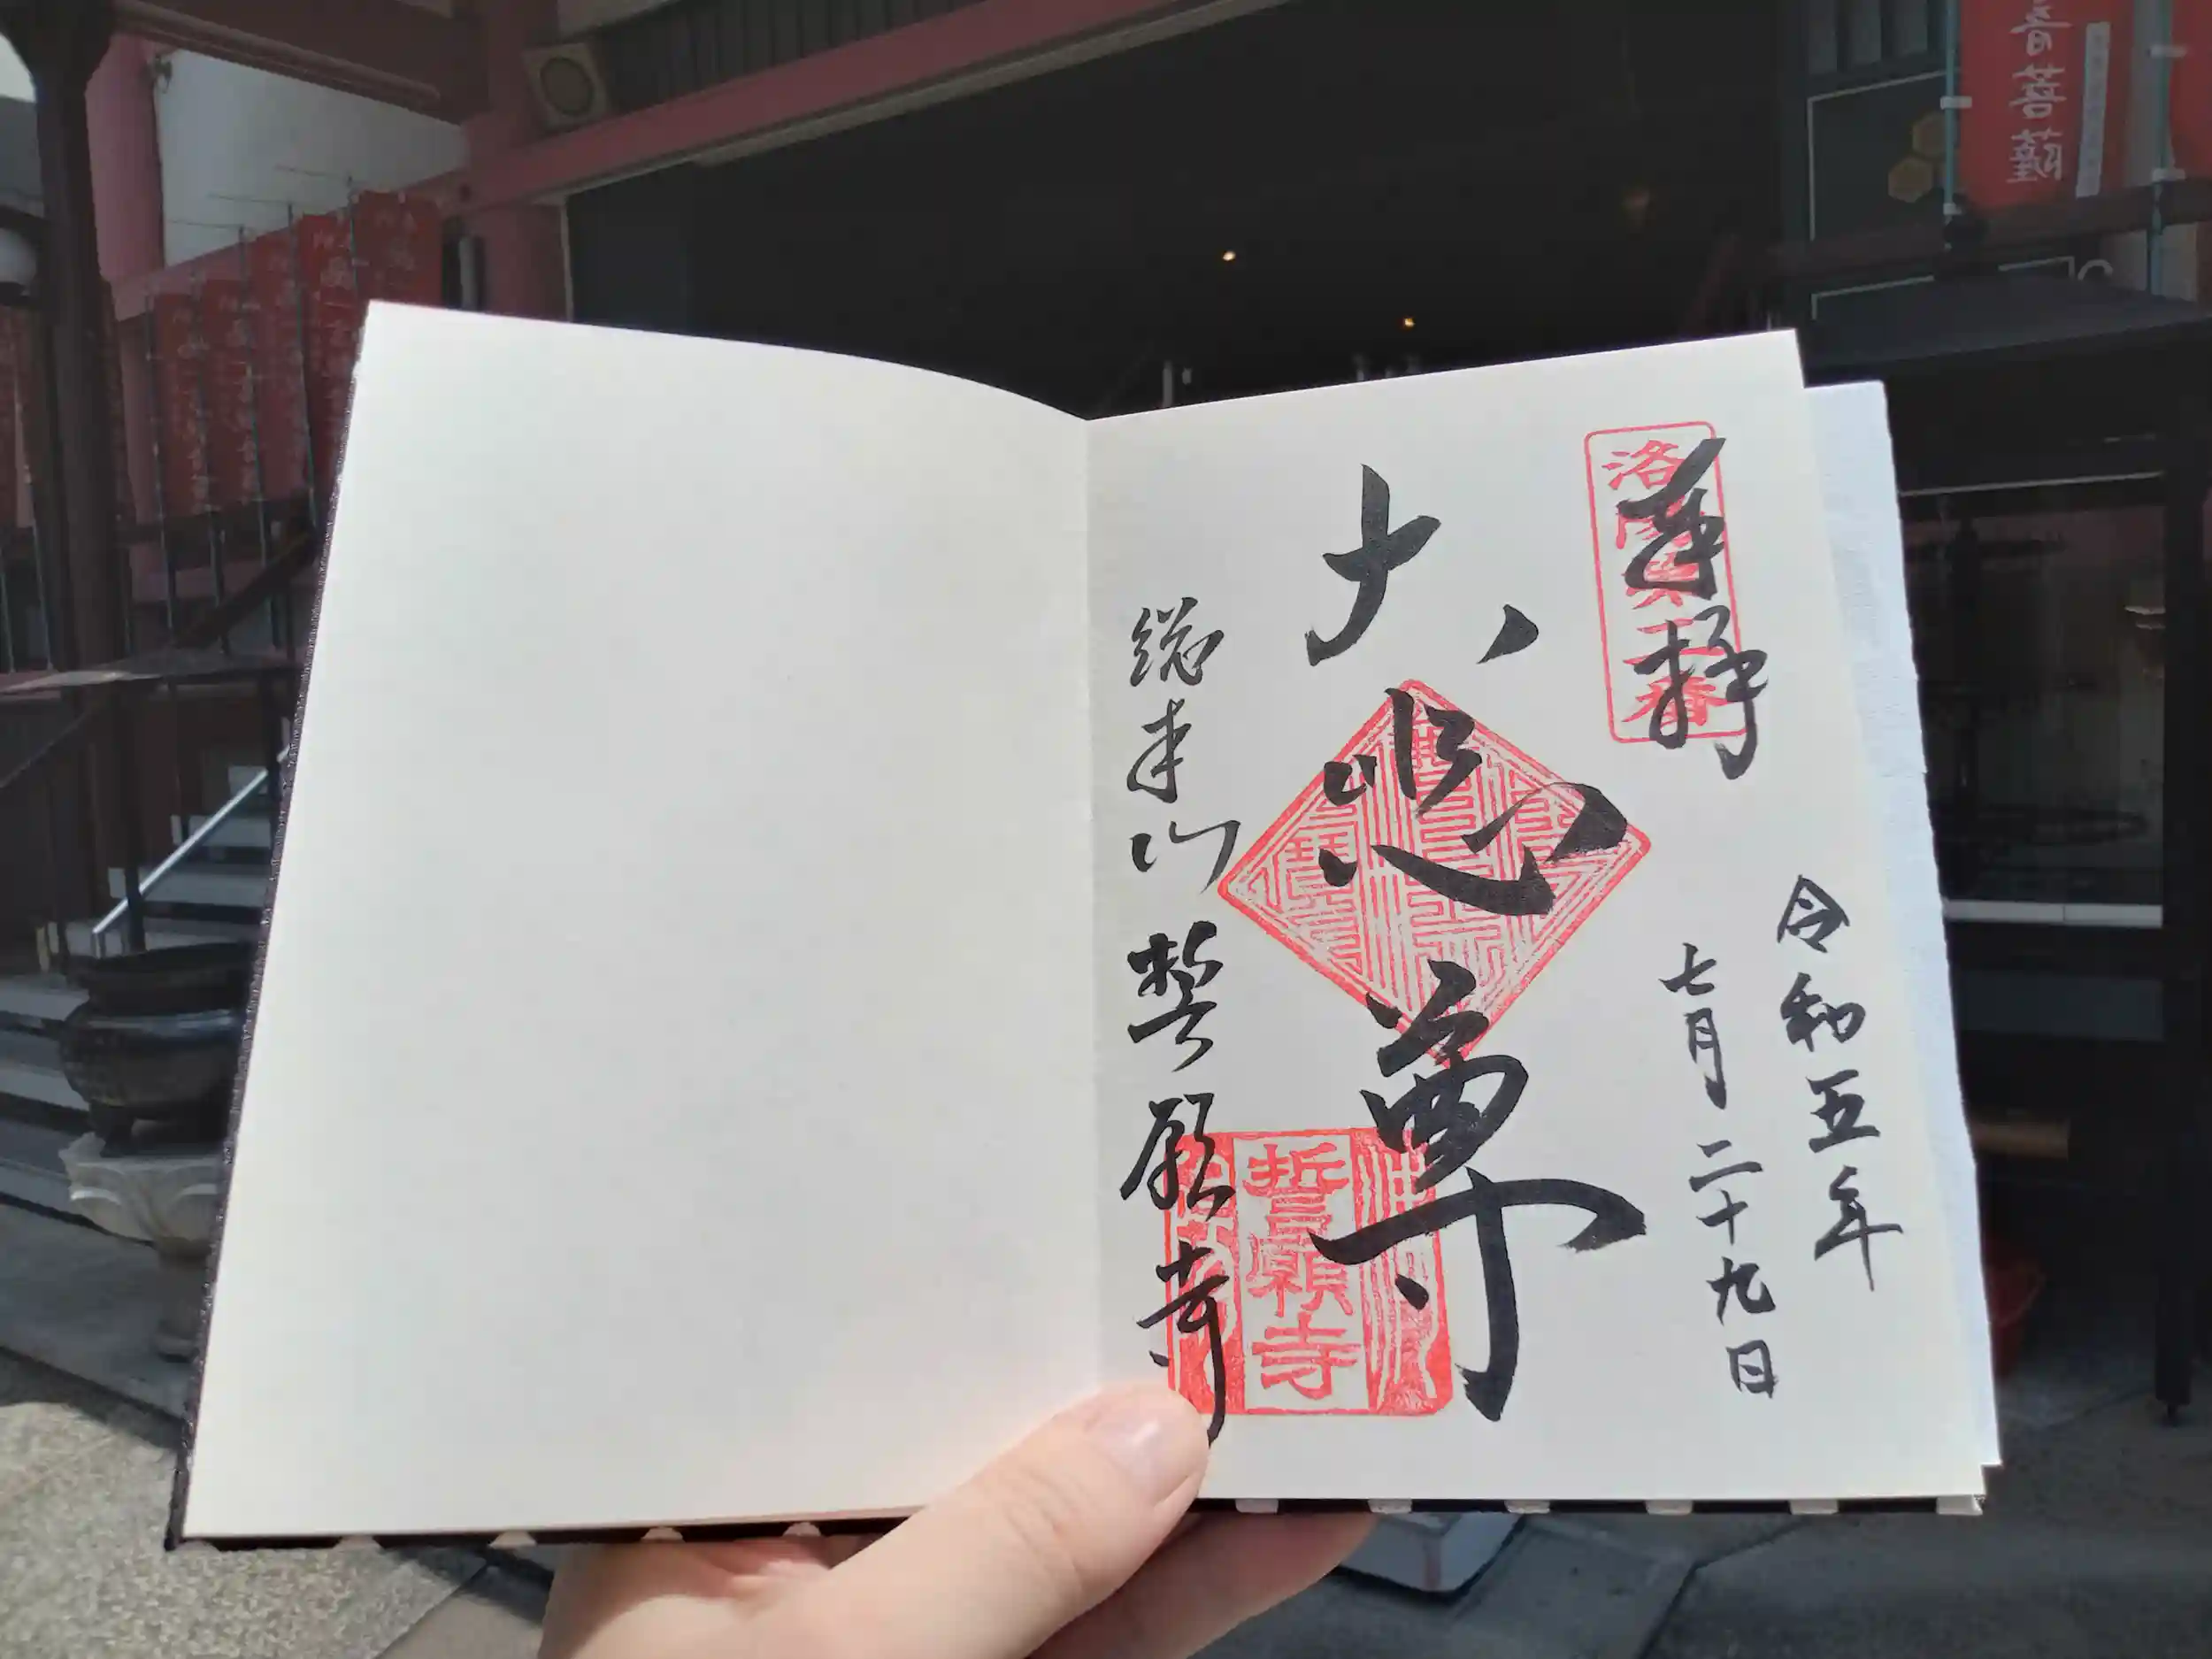 奉拝
洛陽第二番
令和五年
七月二十九日
大悲尊
総本山誓願寺
誓願寺
音菩薩